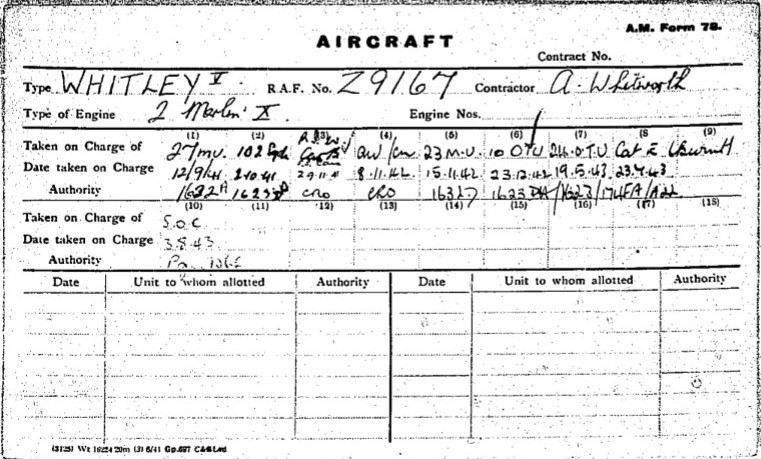 A.M. Form 78.
AIRCRAFT
Contract No.
Type WHITLEY V R.A.F. No. Z9167 Contractor A. Whitworth
Type of Engine 2 Merlin X Engine Nos.
(1) (2) (4) (5) (6) (7) (8 (9)
Taken on Charge of 27 MU 102 Sqdn AW/cn 23 M.U. 10 OTU 24 O.T.U Cat E (Burnt)
Date taken on Charge 12/9/41 2.10.41 29.11.41 8.11.42 15.11.42 23.12.42 19.5.43 23.7.43
Authority 1622A CRO CRO 16327
(10) (11) (12) (13) (14) (15) (16) (17) (18)
Taken on Charge of S.O.C
Date taken on Charge 3.8.43
Authority
Date Unit to whom allotted Authority Date Unit to whom allotted Authority
(3125) Wt 16224 20m (3) 6/41 Gp.697 C&S Ltd